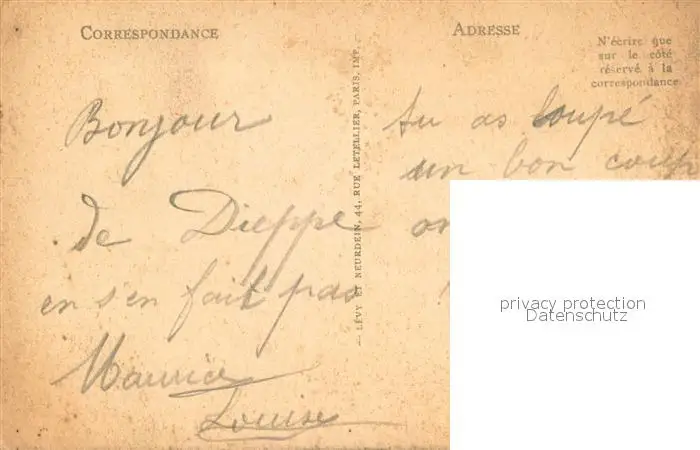 CORRESPONDANCE
ADRESSE
N'écrire que
sur le côté
réservé à la
correspondance
Bonjour
de Dieppe
en s'en fait pas
Maurice
Louise
LÉVY ET NEURDEIN, 44, RUE LETELLIER, PARIS, IMP.
tu as loupé
un bon coup
on
privacy protection
Datenschutz